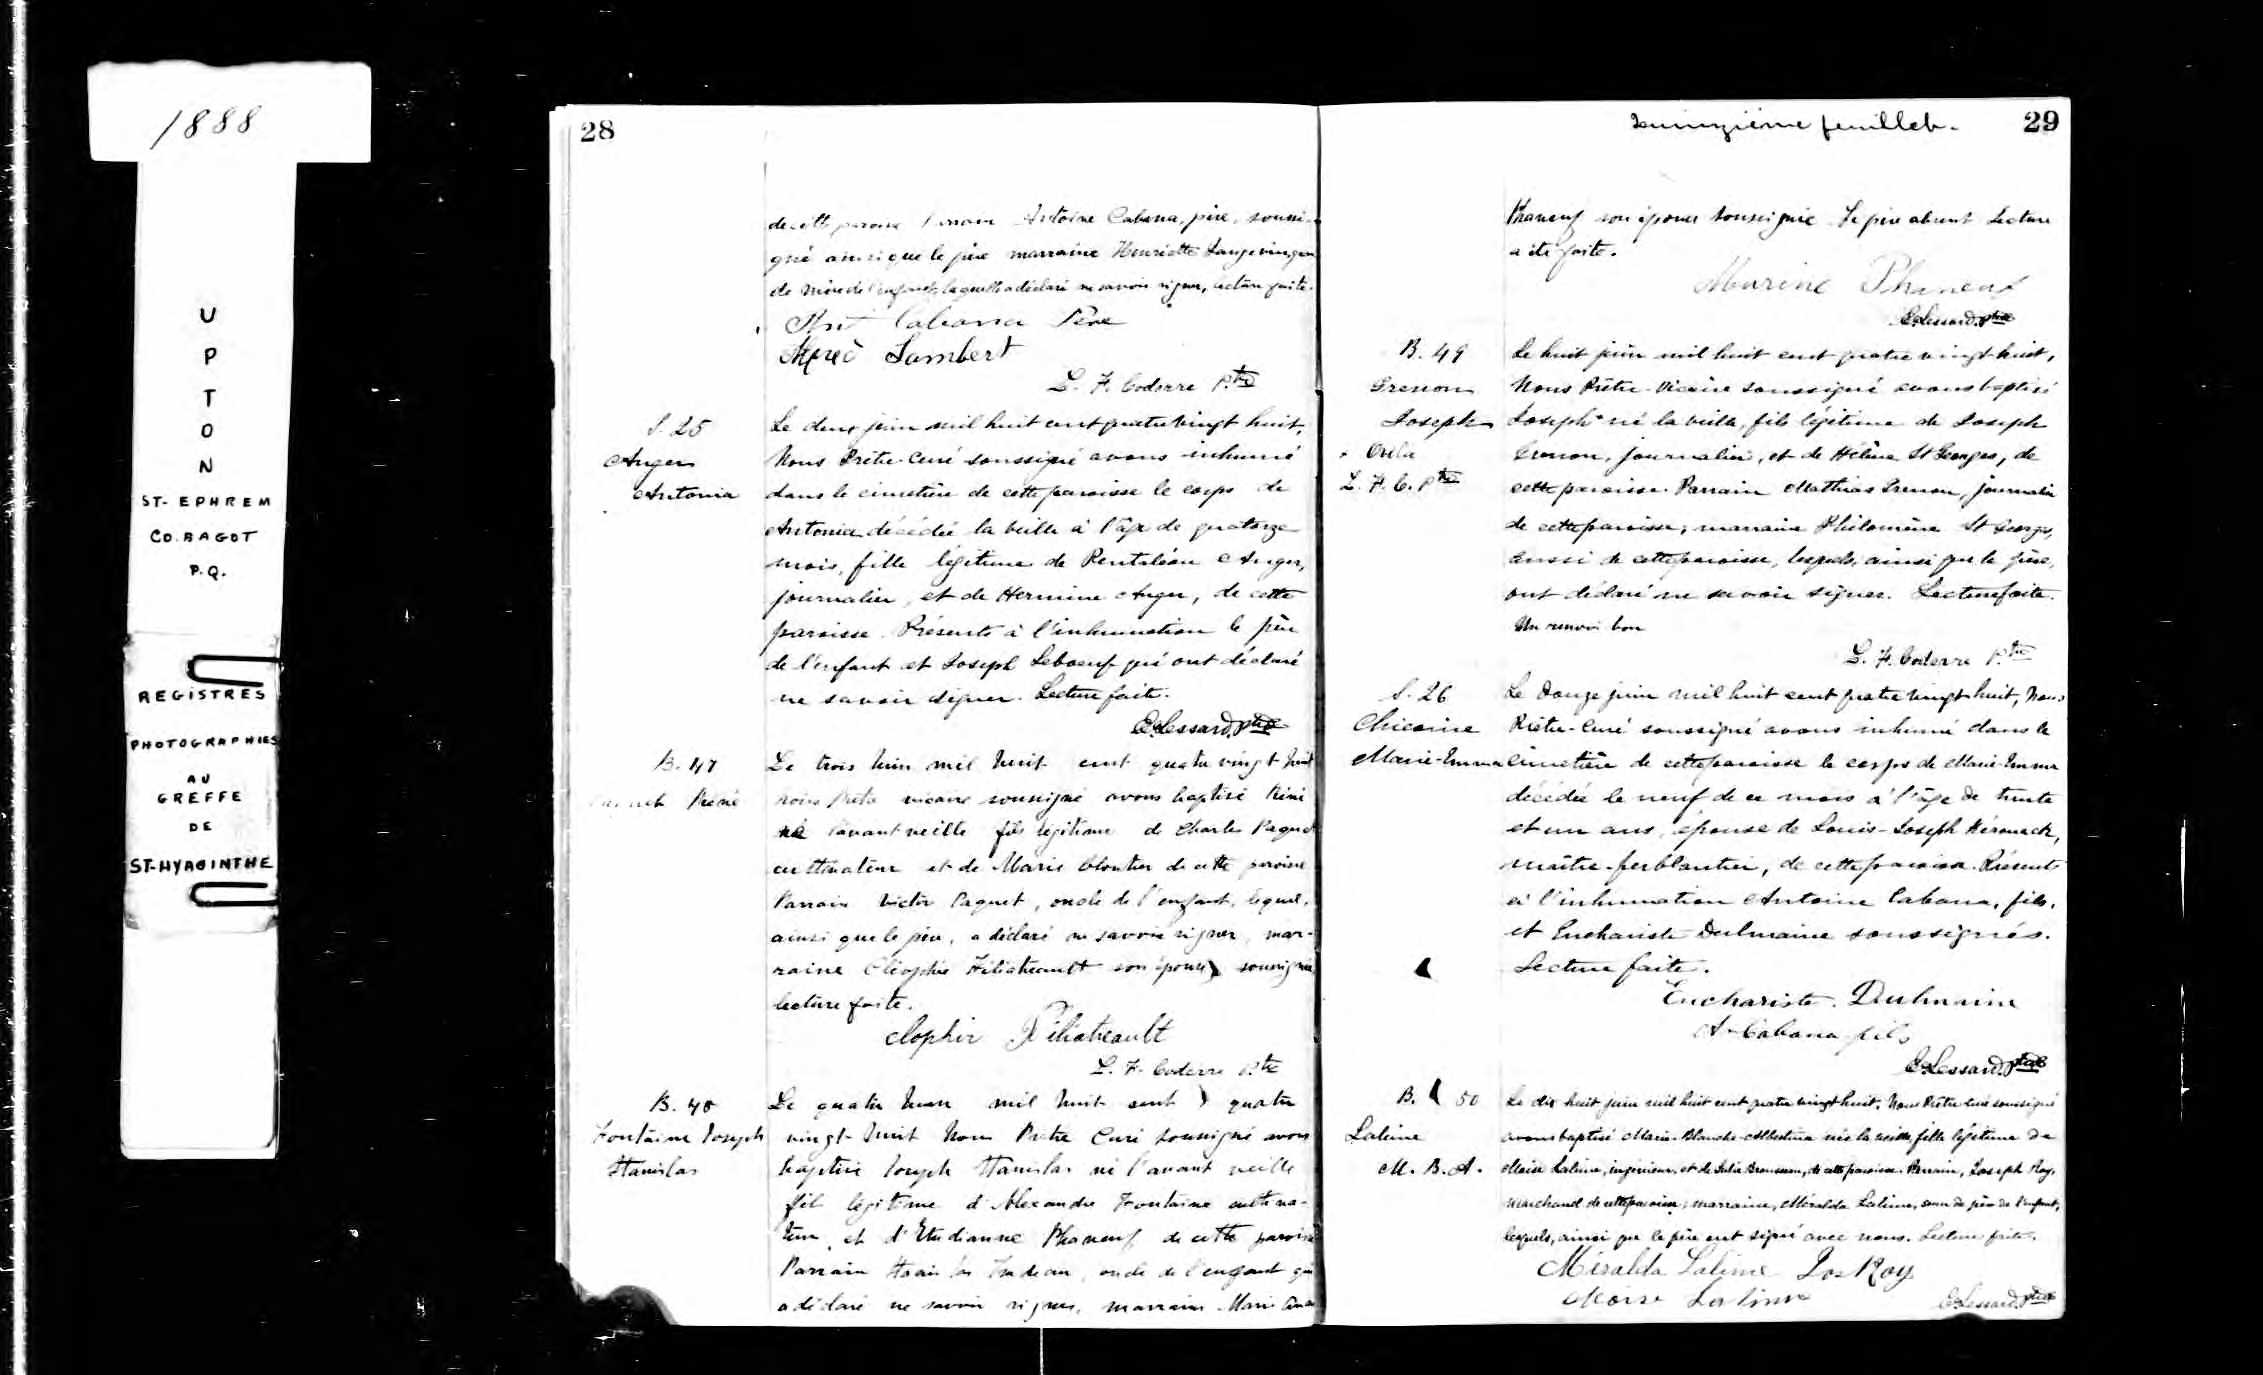 1888
U
P
T
O
N
ST- EPHREM
CO. BAGOT
P.Q.
REGISTRES
PHOTOGRAPHIES
AU
GREFFE
DE
ST-HYACINTHE
28
de cette paroisse Parrain Antoine Cabana, père, soussi-
gné ainsi que le père marraine Henriette Langevin, gran
de mère de l'enfant, laquelle a déclaré ne savoir signer, lecture faite.
Ant Cabana Père
Alfred Lambert
L. F. Coderre Ptre
S. 25
Anger
Antonia
Le deux juin mil huit cent quatre vingt huit,
Nous Prêtre-Curé soussigné avons inhumé
dans le cimetière de cette paroisse le corps de
Antonia décédée la veille à l'âge de quatorze
mois, fille légitime de Pentaléon Anger,
journalier, et de Hermine Anger, de cette
paroisse. Présents à l'inhumation le père
de l'enfant et Joseph Leboeuf qui ont déclaré
ne savoir signer. Lecture faite.
E. Lessard, Ptre
B. 47
René
Le trois Juin mil huit cent quatre vingt huit
nous Prêtre vicaire soussigné avons baptisé Réné
né l'avant veille fils légitime de Charles Paquet
cultivateur et de Marie Cloutier de cette paroisse
Parrain Victor Paquet, oncle de l'enfant, lequel,
ainsi que le père, a déclaré ne savoir signer, mar-
raine Cléophie Filiatreault son épouse soussignée
lecture faite.
clophie Filiatreault
L. F. Coderre Ptre
B. 48
Fontaine Joseph
Stanislas
Le quatre Juin mil huit cent quatre
vingt-huit Nous Prêtre Curé soussigné avons
baptisé Joseph Stanislas né l'avant veille
fils légitime d'Alexandre Fontaine cultiva-
teur, et d'Etudianne Phaneuf de cette paroisse
Parrain Stanislas oncle de l'enfant qui
a déclaré ne savoir signer, marraine Marie
feuillet.
29
Phaneuf son épouse soussignée Le père absent Lecture
a été faite.
Phaneuf
E. Lessard, Ptre
B. 49
Grenon
Joseph
L. F. C. Ptre
Le huit juin mil huit cent quatre vingt-huit,
Nous Prêtre-Vicaire soussigné avons baptisé
Joseph né la veille, fils légitime de Joseph
Grenon, journalier, et de Hélène St Georges, de
cette paroisse. Parrain Mathias Grenon, journalier
de cette paroisse; marraine Philomène St Georges,
aussi de cette paroisse, lesquels, ainsi que le père,
ont déclaré ne savoir signer. Lecture faite.
Un renvoi bon
L. F. Coderre Ptre
S. 26
Chicoine
Marie-Emma
Le douze juin mil huit cent quatre vingt-huit, Nous
Prêtre-Curé soussigné avons inhumé dans le
cimetière de cette paroisse le corps de Marie-Emma
décédée le neuf de ce mois à l'âge de trente
et un ans, épouse de Louis-Joseph Kérouack,
maître-ferblantier, de cette paroisse. Présents
à l'inhumation Antoine Cabana, fils,
et Euchariste Dulmaine soussignés.
Lecture faite.
Euchariste. Dulmaine
A. Cabana fils
E. Lessard, Ptre
B. 50
Lalime
M. B. A.
Le dix huit juin mil huit cent quatre vingt huit, Nous Prêtre Curé soussigné
avons baptisé Marie-Blanche-Albertina née la veille, fille légitime de
Moïse Lalime, ingénieur, et de Julie Brousseau, de cette paroisse. Parrain, Joseph Roy,
marchand de cette paroisse; marraine, Méralda Lalime, soeur du père de l'enfant,
lesquels, ainsi que le père ont signé avec nous. Lecture faite.
Méralda Lalime Jos Roy
Moïse Lalime
E. Lessard, Ptre